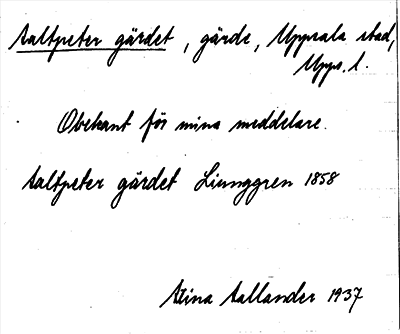 Saltpeter gärdet, gärde, Uppsala stad,
Upps. l.
Obekant för mina meddelare.
Saltpeter gärdet Ljunggren 1858
Stina Sallander 1937